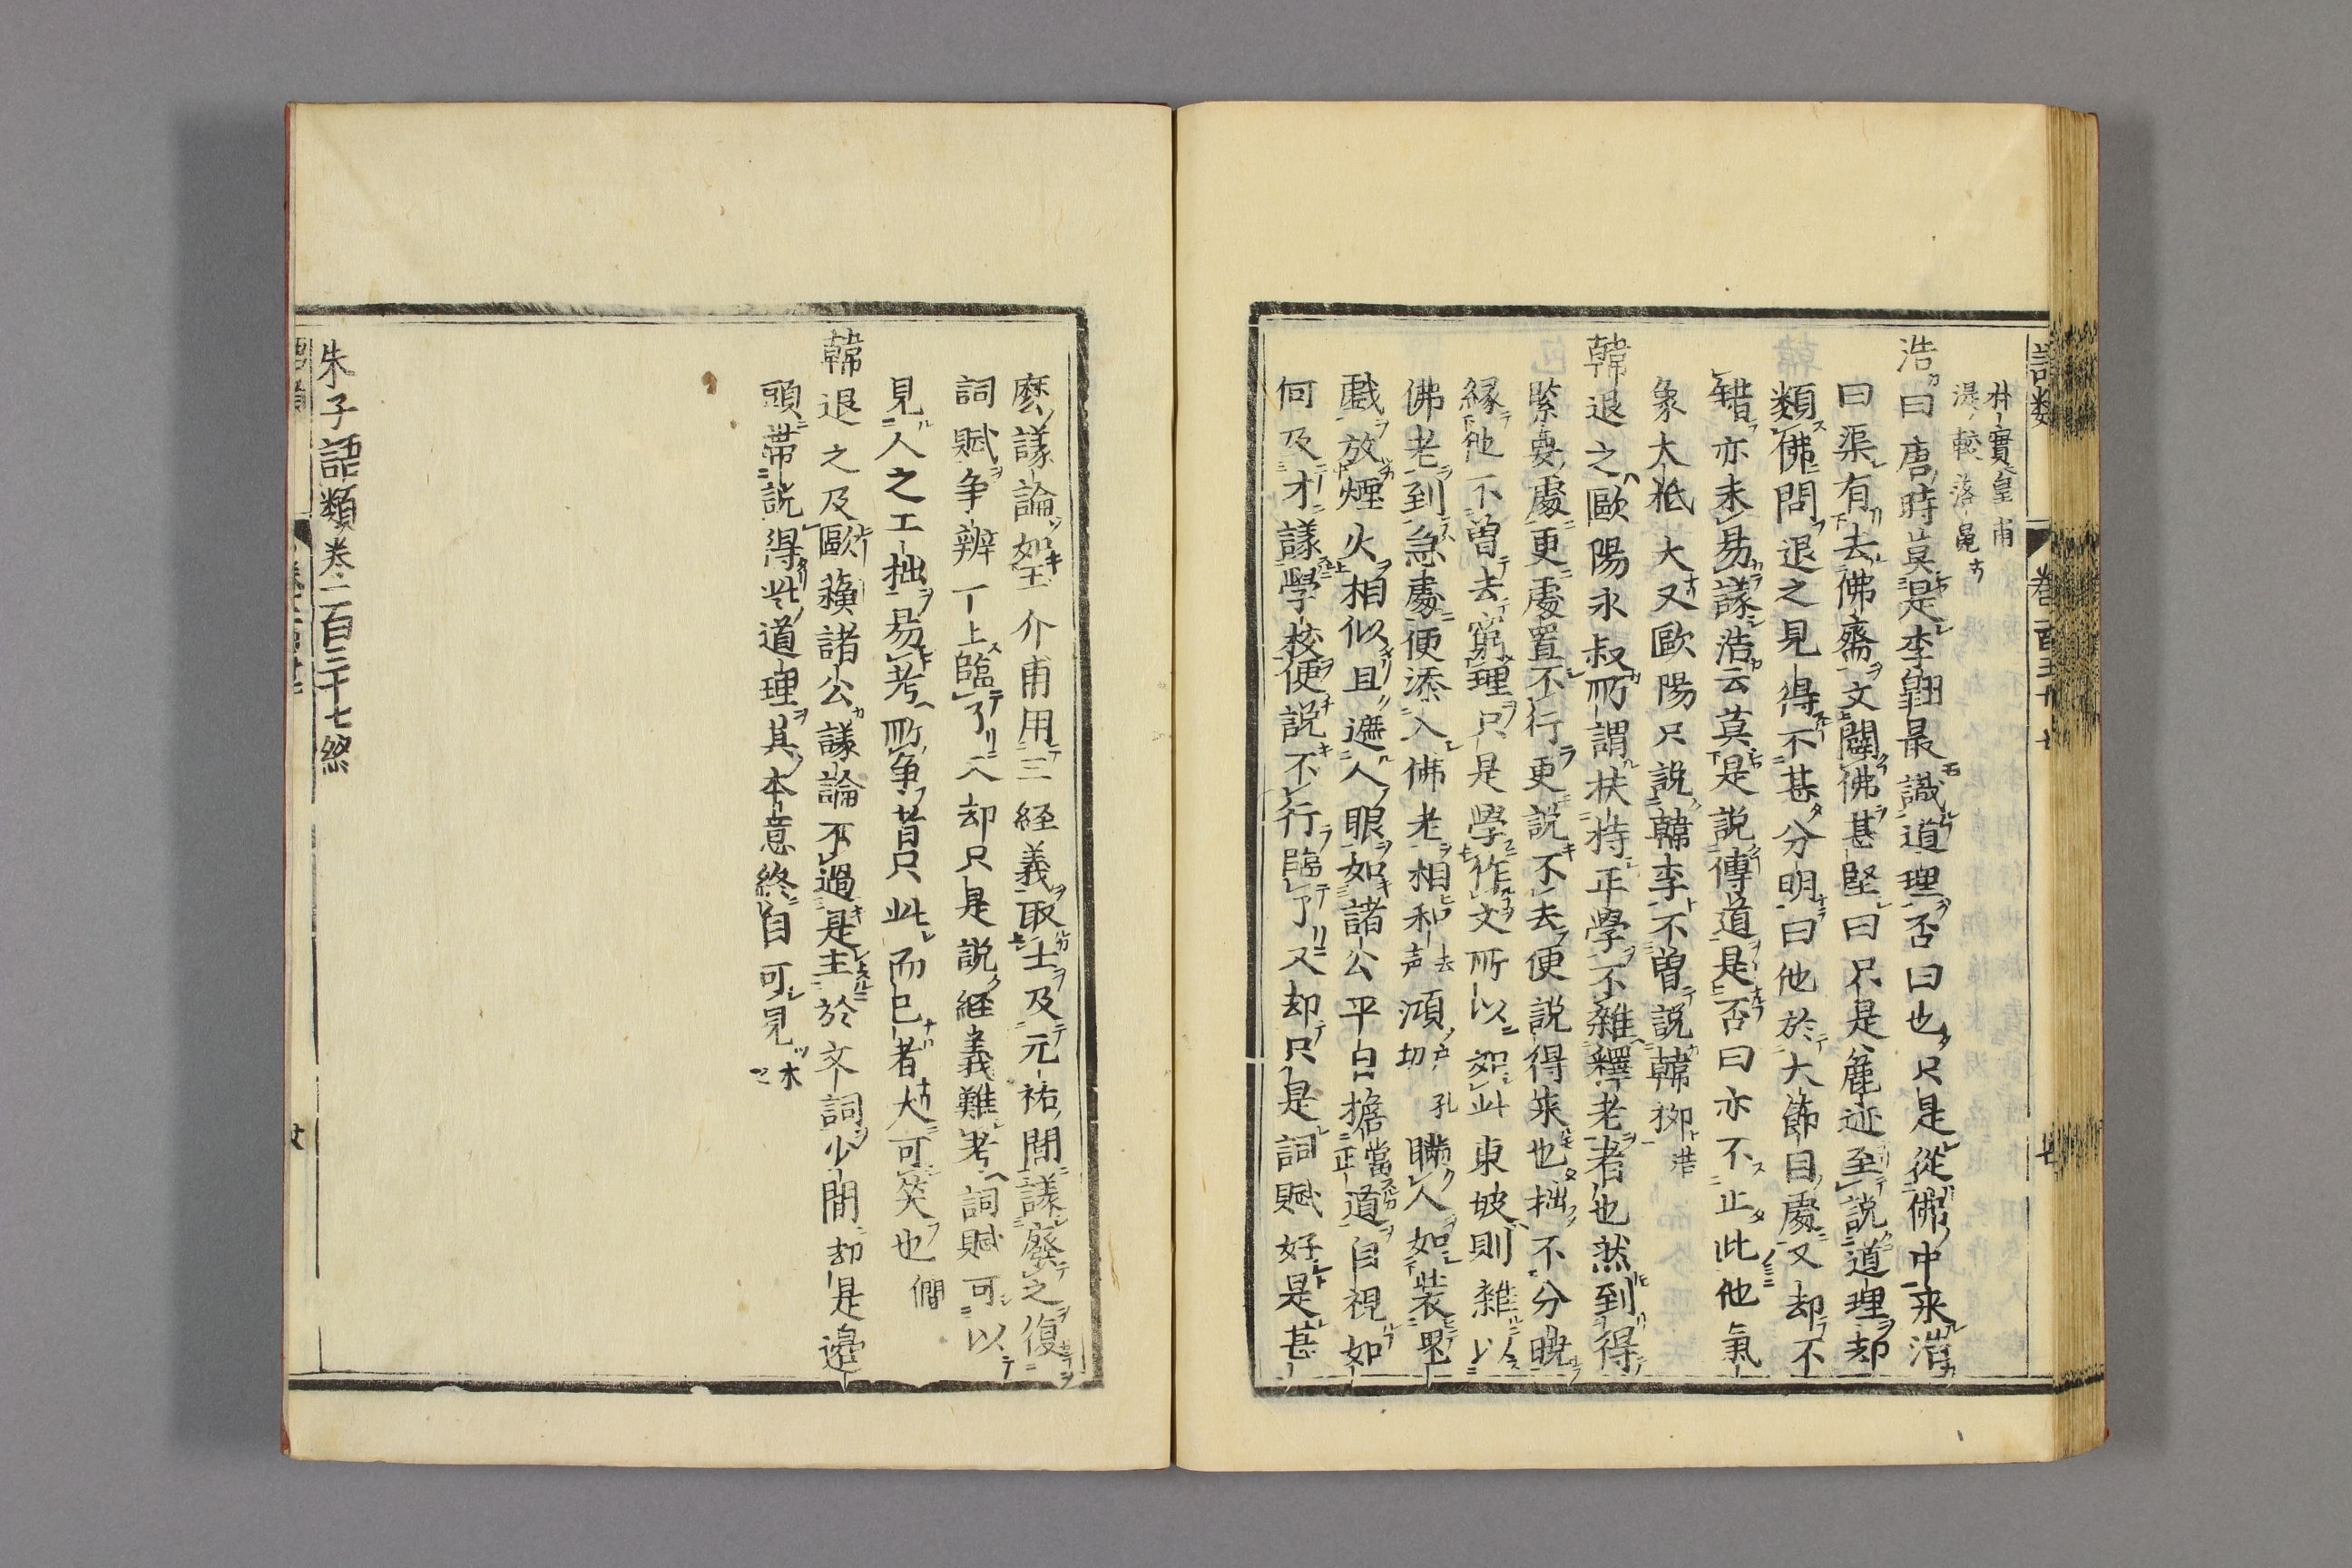 語類
卷一百三十七
井實皇甫
湜較落邑
浩曰唐時莫是李翺最識道理否曰也只是從佛中來浩
曰渠有去佛齋文闢佛甚堅曰只是麁迹至說道理却
類佛問退之見得不甚分明曰他於大節目處又却不
錯亦未易議浩云莫是說傳道是否曰亦不止此他氣
象大抵大又歐陽只說韓李不曽說韓柳浩
韓退之歐陽永叔所謂扶持正學不雜釋老者也然到得
緊要處更處置不行更說不去便說得來也拙不分曉
縁他不曽去窮理只是學作文所以如此東坡則雜以
佛老到急處便添入佛老相和声去澒戶孔切瞞人如裝鬼
戲放煙火相似且遮人眼如諸公平日擔當正道自視如
何及才議學校便說不行臨了又却只是詞賦好是甚
麽議論如王介甫用三経義取士及元祐間議廢之復
詞賦争辨一上臨了又却只是説経義難考詞賦可以
見人之工拙易考所争者只此而已者大可笑也僩
韓退之及歐蘓諸公議論不過是主於文詞少間却是邊
頭帶說得此道理其本意終自可見木之
朱子語類卷一百三十七終